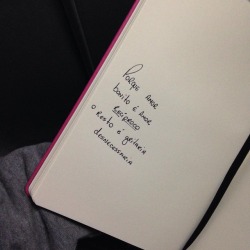 Porque amor
bonito é amor
recíproco
o resto é gritaria
desnecessária